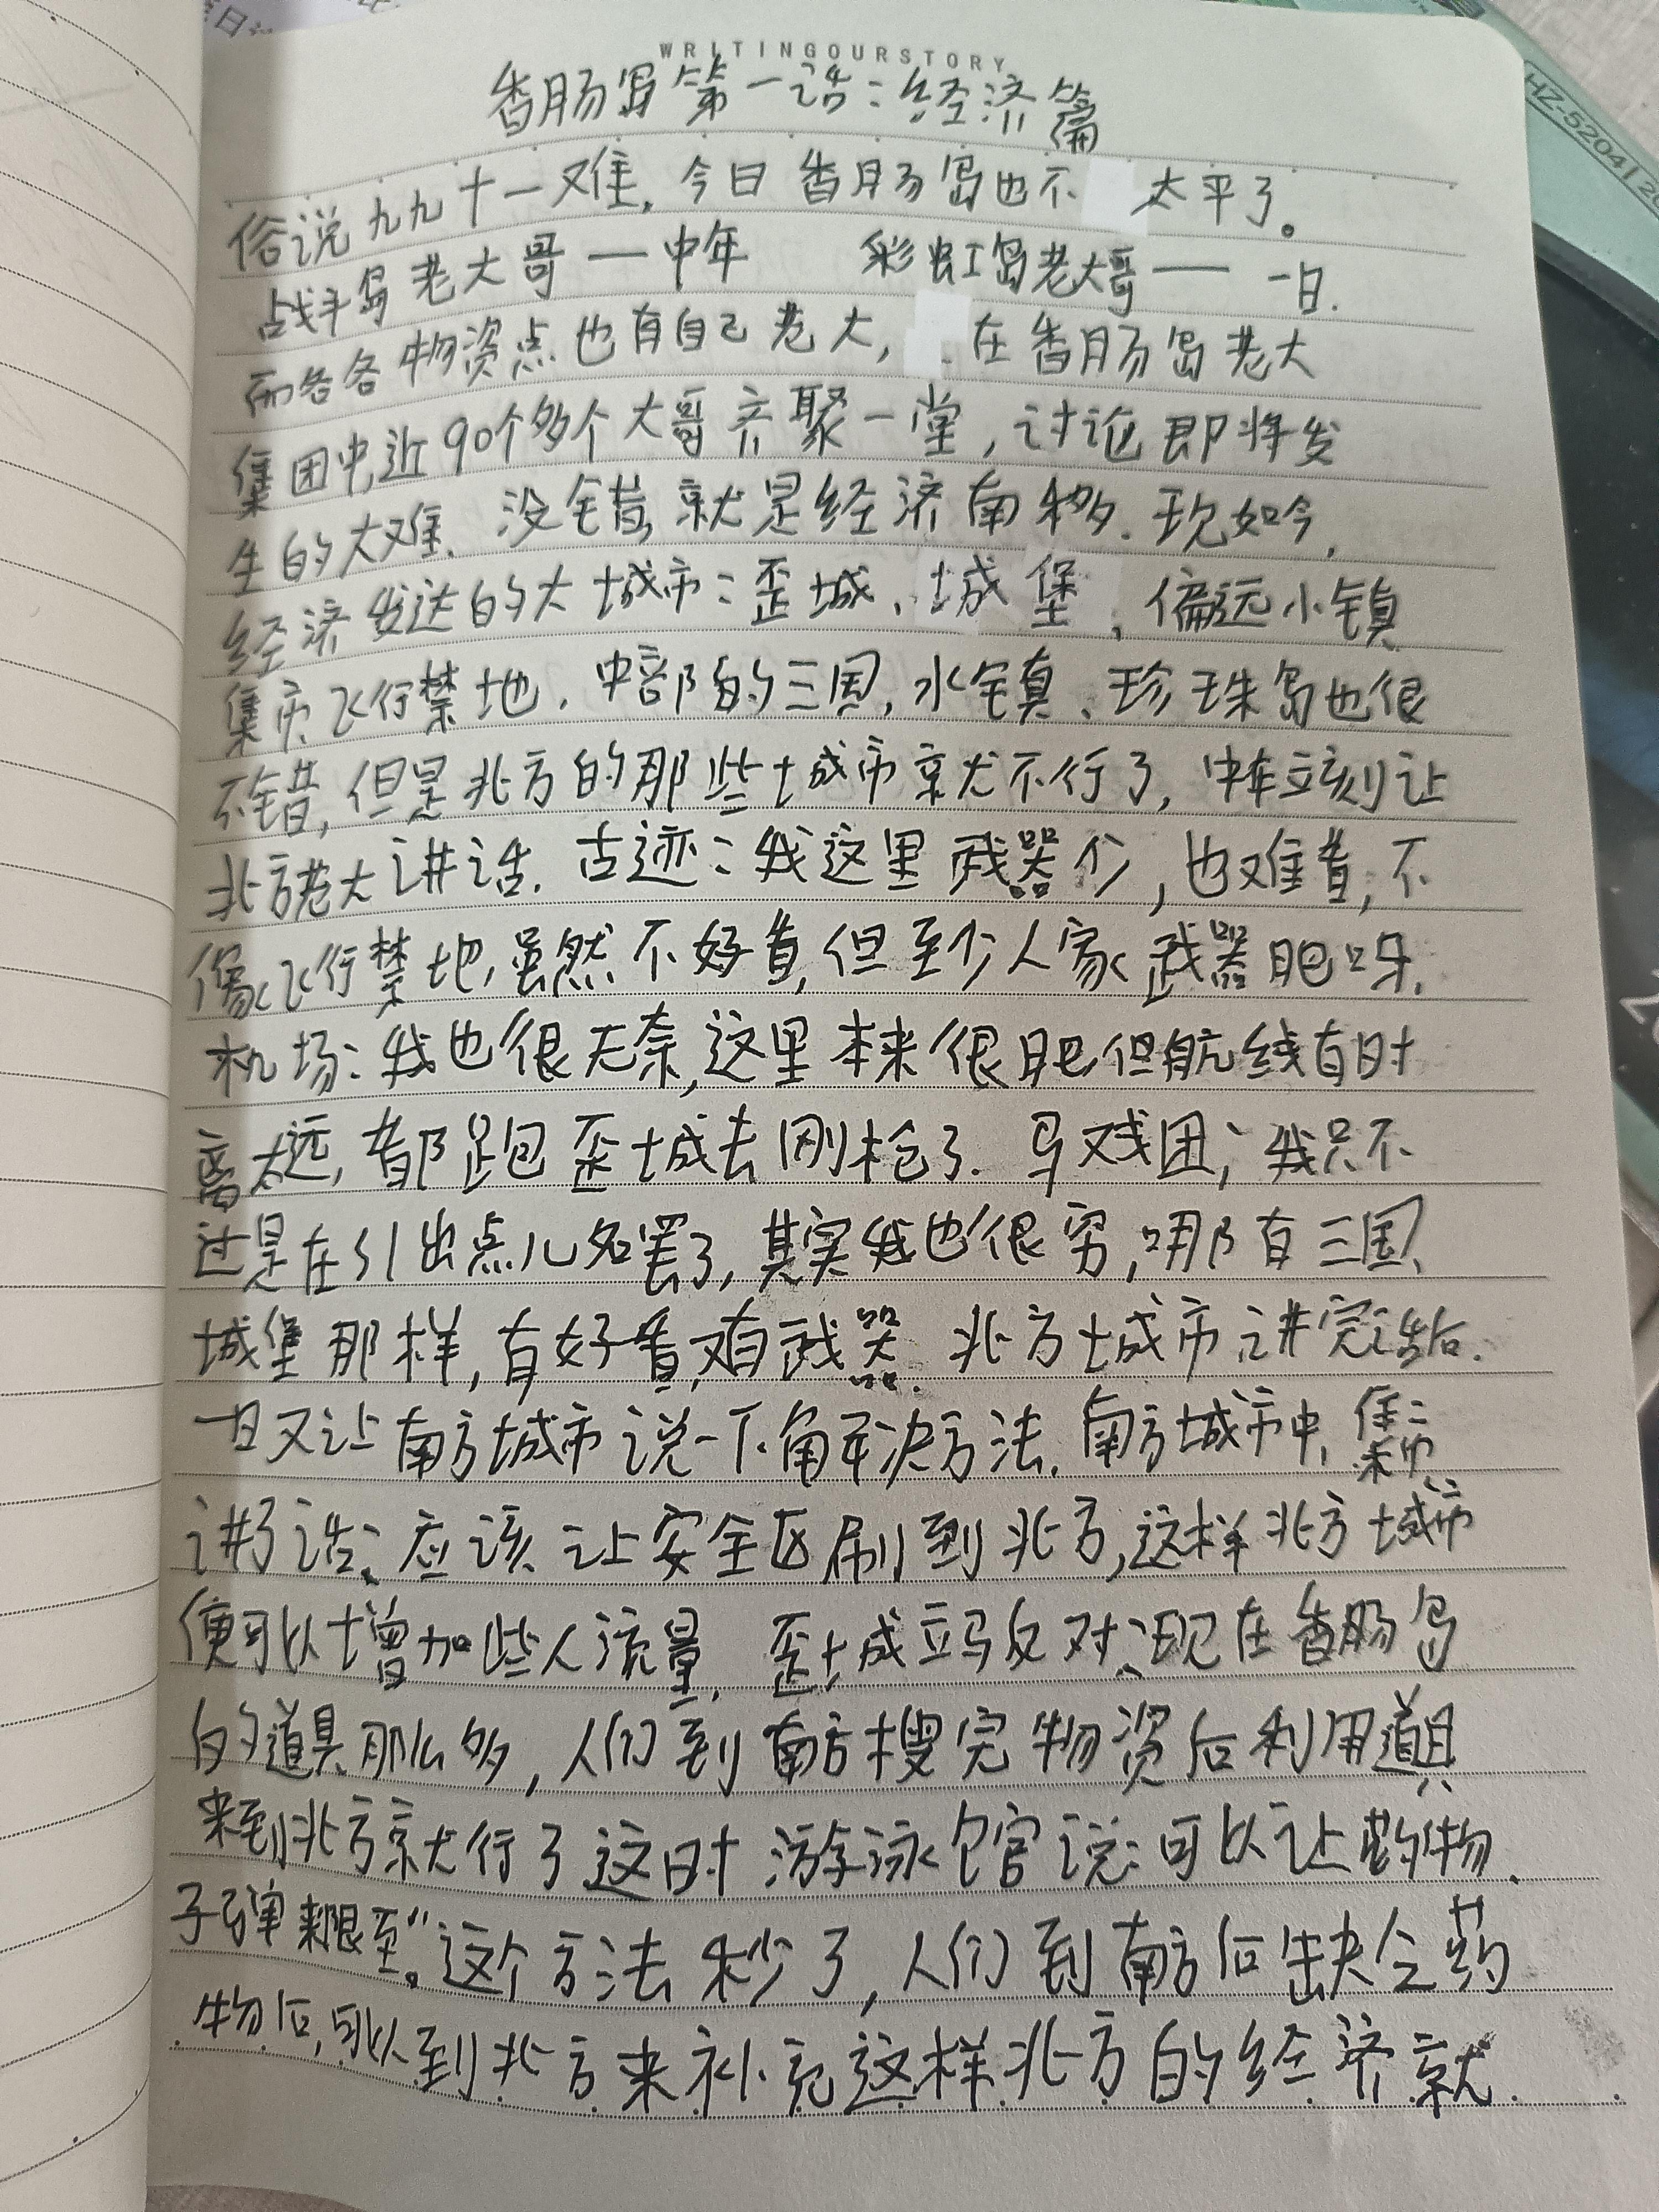 WRITINGOURSTORY
香肠岛第一话:经济篇
俗说九九十一难,今日香肠岛也不太平了。
战斗岛老大哥——中年 彩虹岛老大哥—— 一日.
而各各物资点也有自己老大, 在香肠岛老大
集团中,近90个多个大哥齐聚一堂,讨论即将发
生的大难.没错,就是经济南移.现如今,
经济发达的大城市:歪城、城堡、偏远小镇
集市、飞行禁地.中部的三国,水镇、珍珠岛也很
不错,但是北方的那些城市就不行了,中年立刻让
北方老大讲话.古迹:我这里武器少,也难看,不
像飞行禁地,虽然不好看,但至少人家武器肥呀.
机场:我也很无奈,这里本来很肥但航线有时
离太远,都跑歪城去刚枪了.马戏团:我只不
过是在引出点儿名罢了,其实我也很穷,哪有三国、
城堡那样,有好看,又有武器.北方城市讲完话后.
一日又让南方城市说一下解决方法.南方城市中,集市
讲了话:应该让安全区刷到北方,这样北方城市
便可以增加些人流量.歪城立马反对:现在香肠岛
的道具那么多,人们到南方搜完物资后利用道具
来到北方就行了这时游泳馆说:可以让药物、
子弹来限至。"这个方法秒了,人们到南方后缺仝药
物后,可以到北方来补充这样北方的经济就
HZ-5204